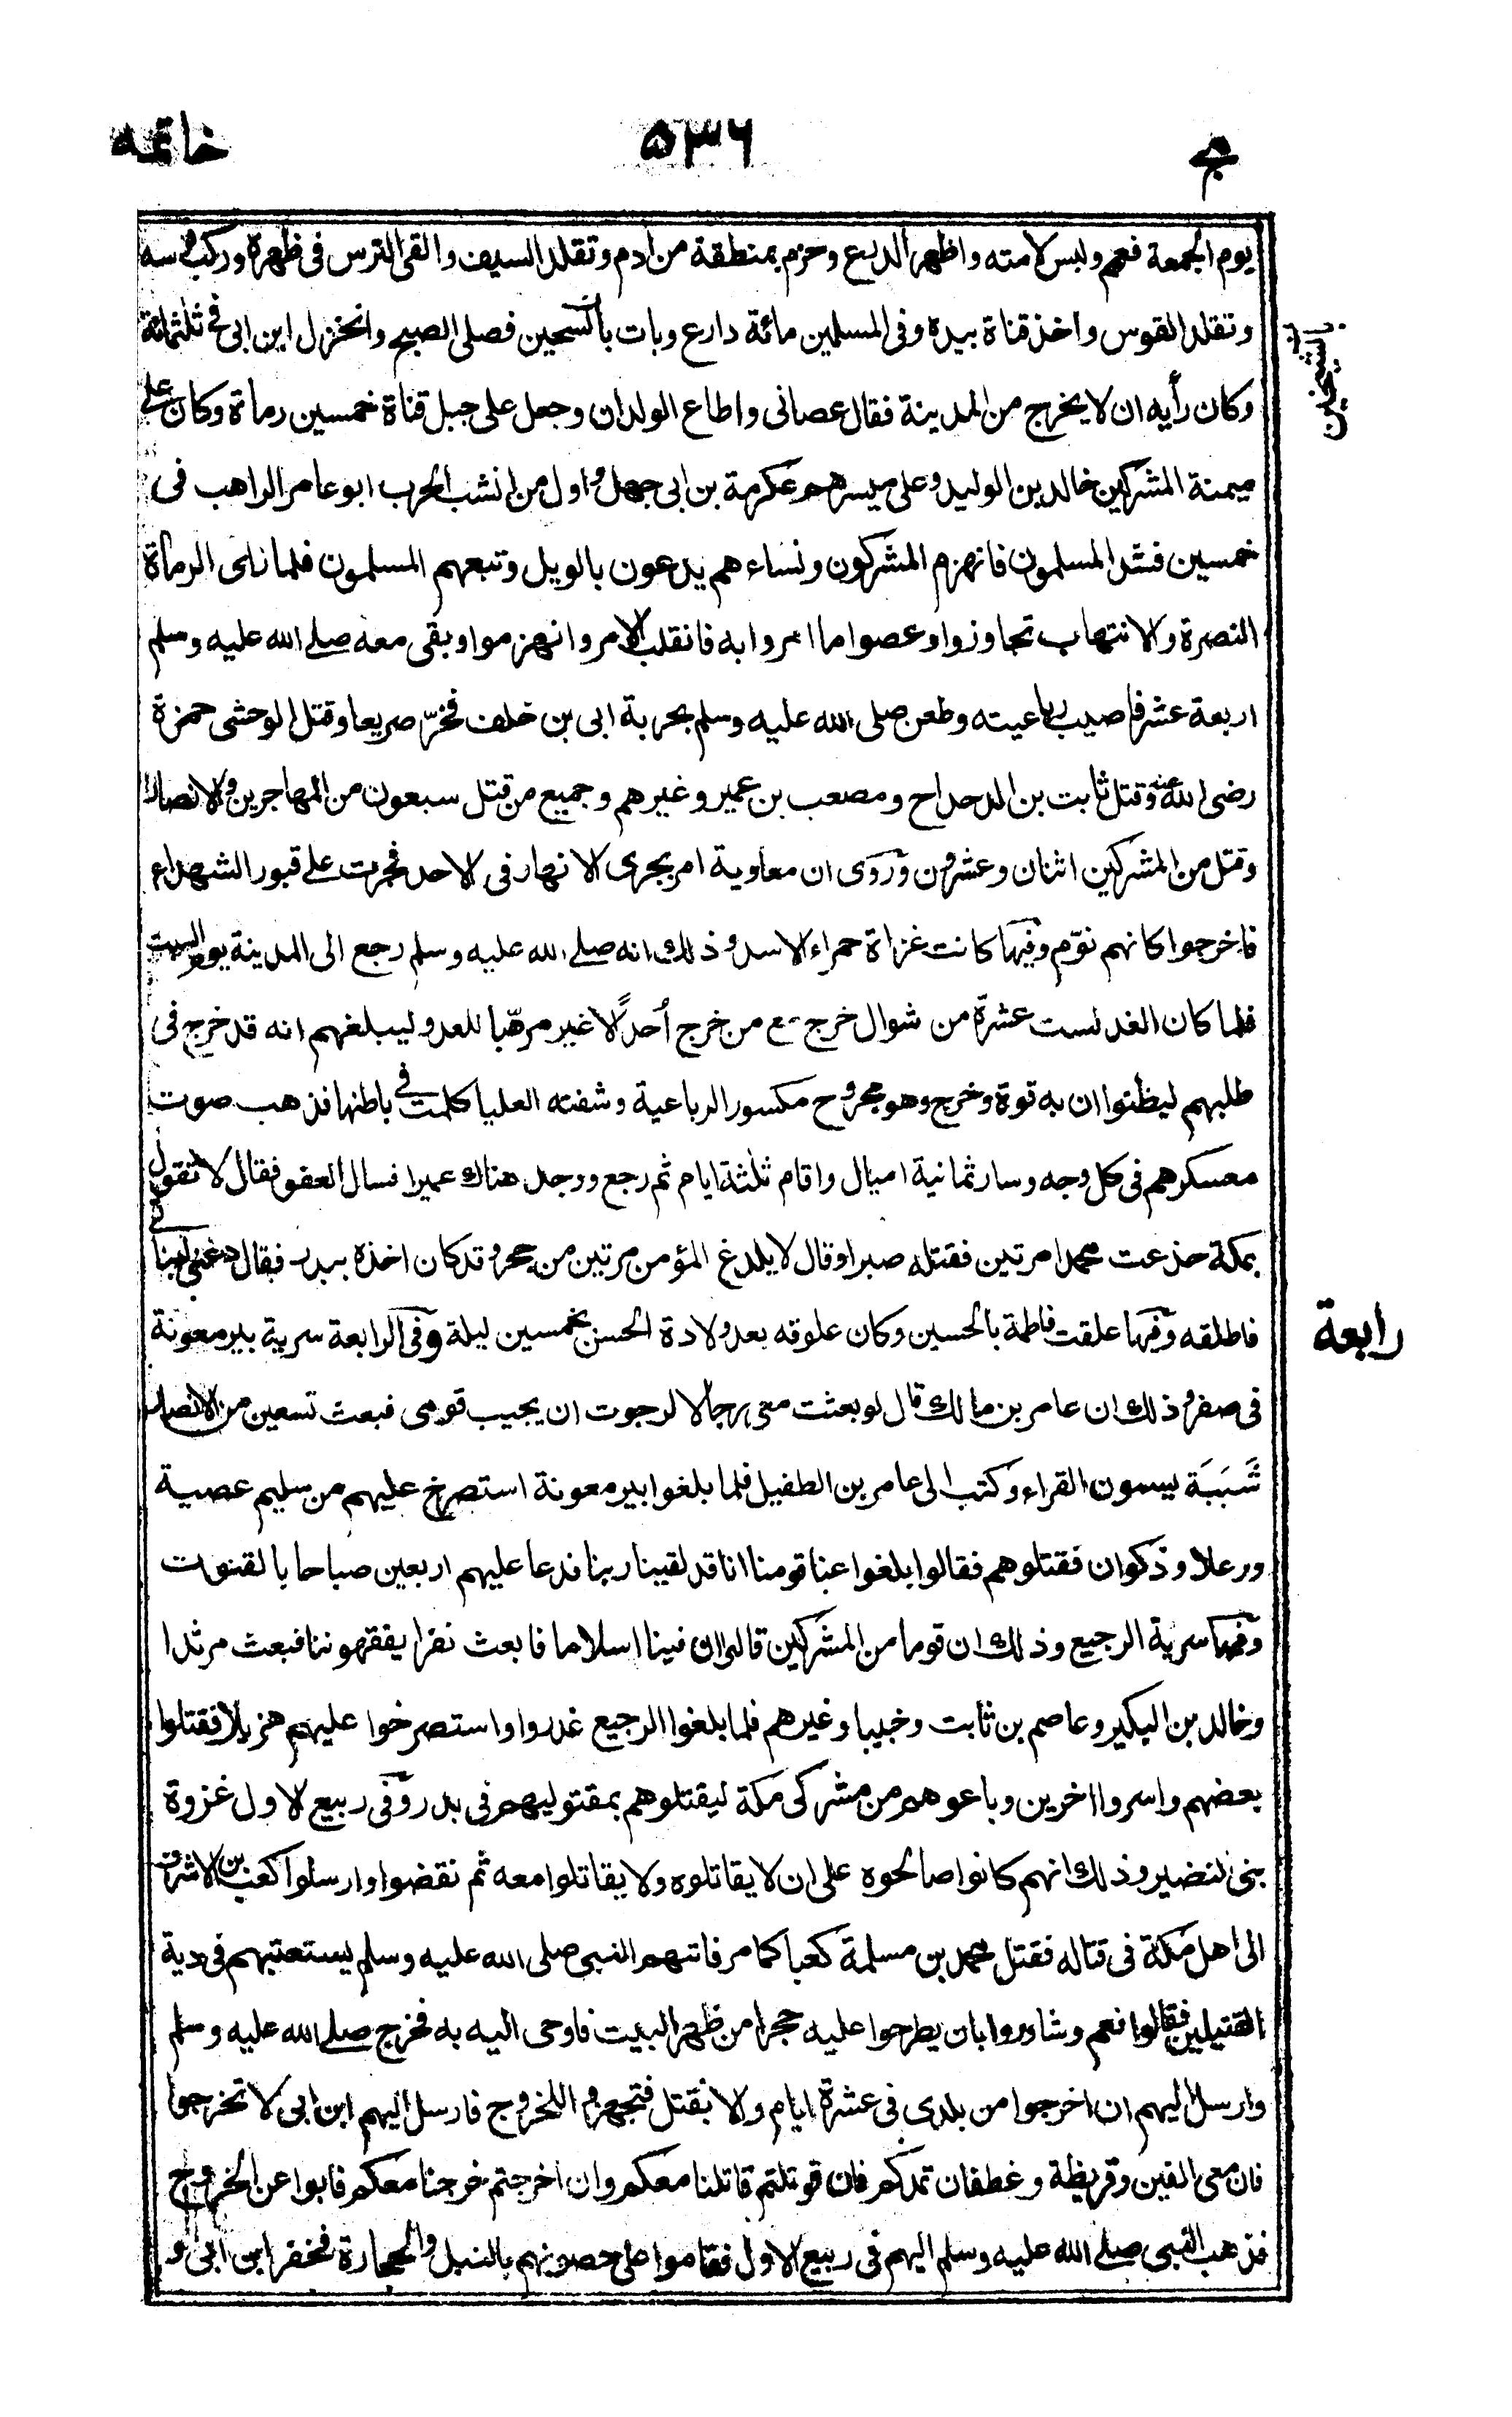 خاتمه
۵۳۶
ج
يوم الجمعة فعم ولبس لامته واظهر الدرع وحزم بمنطقة من ادم وتقلد السيف والقى الترس فى ظهره وركب فرسه
وتقلد القوس واخذ قناة بيده وفى المسلمين مائة دارع وبات بالشيخين فصلى الصبح وانخزل ابن ابى فى ثلثمائة
بالشيخين
وكان رأيه ان لا يخرج من المدينة فقال عصانى واطاع الولدان وجعل على جبل قناة خمسين رماة وكان على
ميمنة المشركين خالد بن الوليد وعلى ميسرهم عكرمة بن ابى جهل واول من انشب الحرب ابو عامر الراهب فى
خمسين فشد المسلمون فانهزم المشركون ونساءهم يدعون بالويل وتبعهم المسلمون فلما رأى الرماة
النصرة والانتهاب تجاوزوا وعصوا ما امروا به فانقلب الامر وانهزموا وبقى معه صلى الله عليه وسلم
اربعة عشر فاصيب رباعيته وطعن صلى الله عليه وسلم بحربة ابى بن خلف فخرّ صريعا وقتل الوحشى حمزة
رضى الله عنه وقتل ثابت بن الدحداح ومصعب بن عمير وغيرهم وجميع من قتل سبعون من المهاجرين والانصار
وقتل من المشركين اثنان وعشرون وروى ان معاوية امر بجرى الانهار فى الاحد فجرت على قبور الشهداء
فاخرجوا كانهم نوّم وفيها كانت غزاة حمراء الاسد وذلك انه صلى الله عليه وسلم رجع الى المدينة يوم السبت
فلما كان الغد لست عشرة من شوال خرج مع من خرج أحدًا لا غير مرهّبا للعدو ليبلغهم انه قد خرج فى
طلبهم ليظنوا ان به قوة وخرج وهو مجروح مكسور الرباعية وشفته العليا كلمت فى باطنها فذهب صوت
معسكرهم فى كل وجه وسار ثمانية اميال واقام ثلثة ايام ثم رجع ووجد هناك عميرا فسال العفو فقال لا تقول
بمكة خدعت محمدا مرتين فقتله صبرا وقال لا يلدغ المؤمن مرتين من جحر وقد كان اخذه ببدر فقال دعنى لبناتى
فاطلقه وفيها علقت فاطمة بالحسين وكان علوقه بعد ولادة الحسن بخمسين ليلة وفى الرابعة سرية بير معونة
رابعة
فى صفر وذلك ان عامر بن مالك قال لو بعثت معى رجالا لرجوت ان يجيب قومى فبعث تسعين من الانصار
شَبَبَة يسمون القراء وكتب الى عامر بن الطفيل فلما بلغوا بير معونة استصرخ عليهم من سليم عصية
ورعلا وذكوان فقتلوهم فقالوا بلغوا عنا قومنا انا قد لقينا ربنا فدعا عليهم اربعين صباحا بالقنوت
وفيها سرية الرجيع وذلك ان قوما من المشركين قالوا ان فينا اسلاما فابعث نفرا يفقهوننا فبعث مرثدا
وخالد بن البكير وعاصم بن ثابت وخبيبا وغيرهم فلما بلغوا الرجيع غدروا واستصرخوا عليهم هزيلا فقتلوا
بعضهم واسروا اخرين وباعوهم من مشركى مكة ليقتلوهم بمقتوليهم فى بدر وفى ربيع الاول غزوة
بنى النضير وذلك انهم كانوا صالحوه على ان لا يقاتلوه ولا يقاتلوا معه ثم نقضوا وارسلوا كعب بن الاشرف
الى اهل مكة فى قتاله فقتل محمد بن مسلمة كعبا كما مر فاتهم النبى صلى الله عليه وسلم يستعتبهم فى دية
القتيلين فقالوا نعم وشاوروا بان يطرحوا عليه حجرا من ظهر البيت فاوحى اليه به فخرج صلى الله عليه وسلم
وارسل اليهم ان اخرجوا من بلدى فى عشرة ايام والا نقتل فتجهزوا للخروج فارسل اليهم ابن ابى لا تخرجوا
فان معى الفين وقريظة وغطفان تمدكم فان قوتلتم قاتلنا معكم وان اخرجتم خرجنا معكم فابوا عن الخروج
فذهب النبى صلى الله عليه وسلم اليهم فى ربيع الاول فقاموا على حصونهم بالنبل والحجارة فخفر ابن ابى و